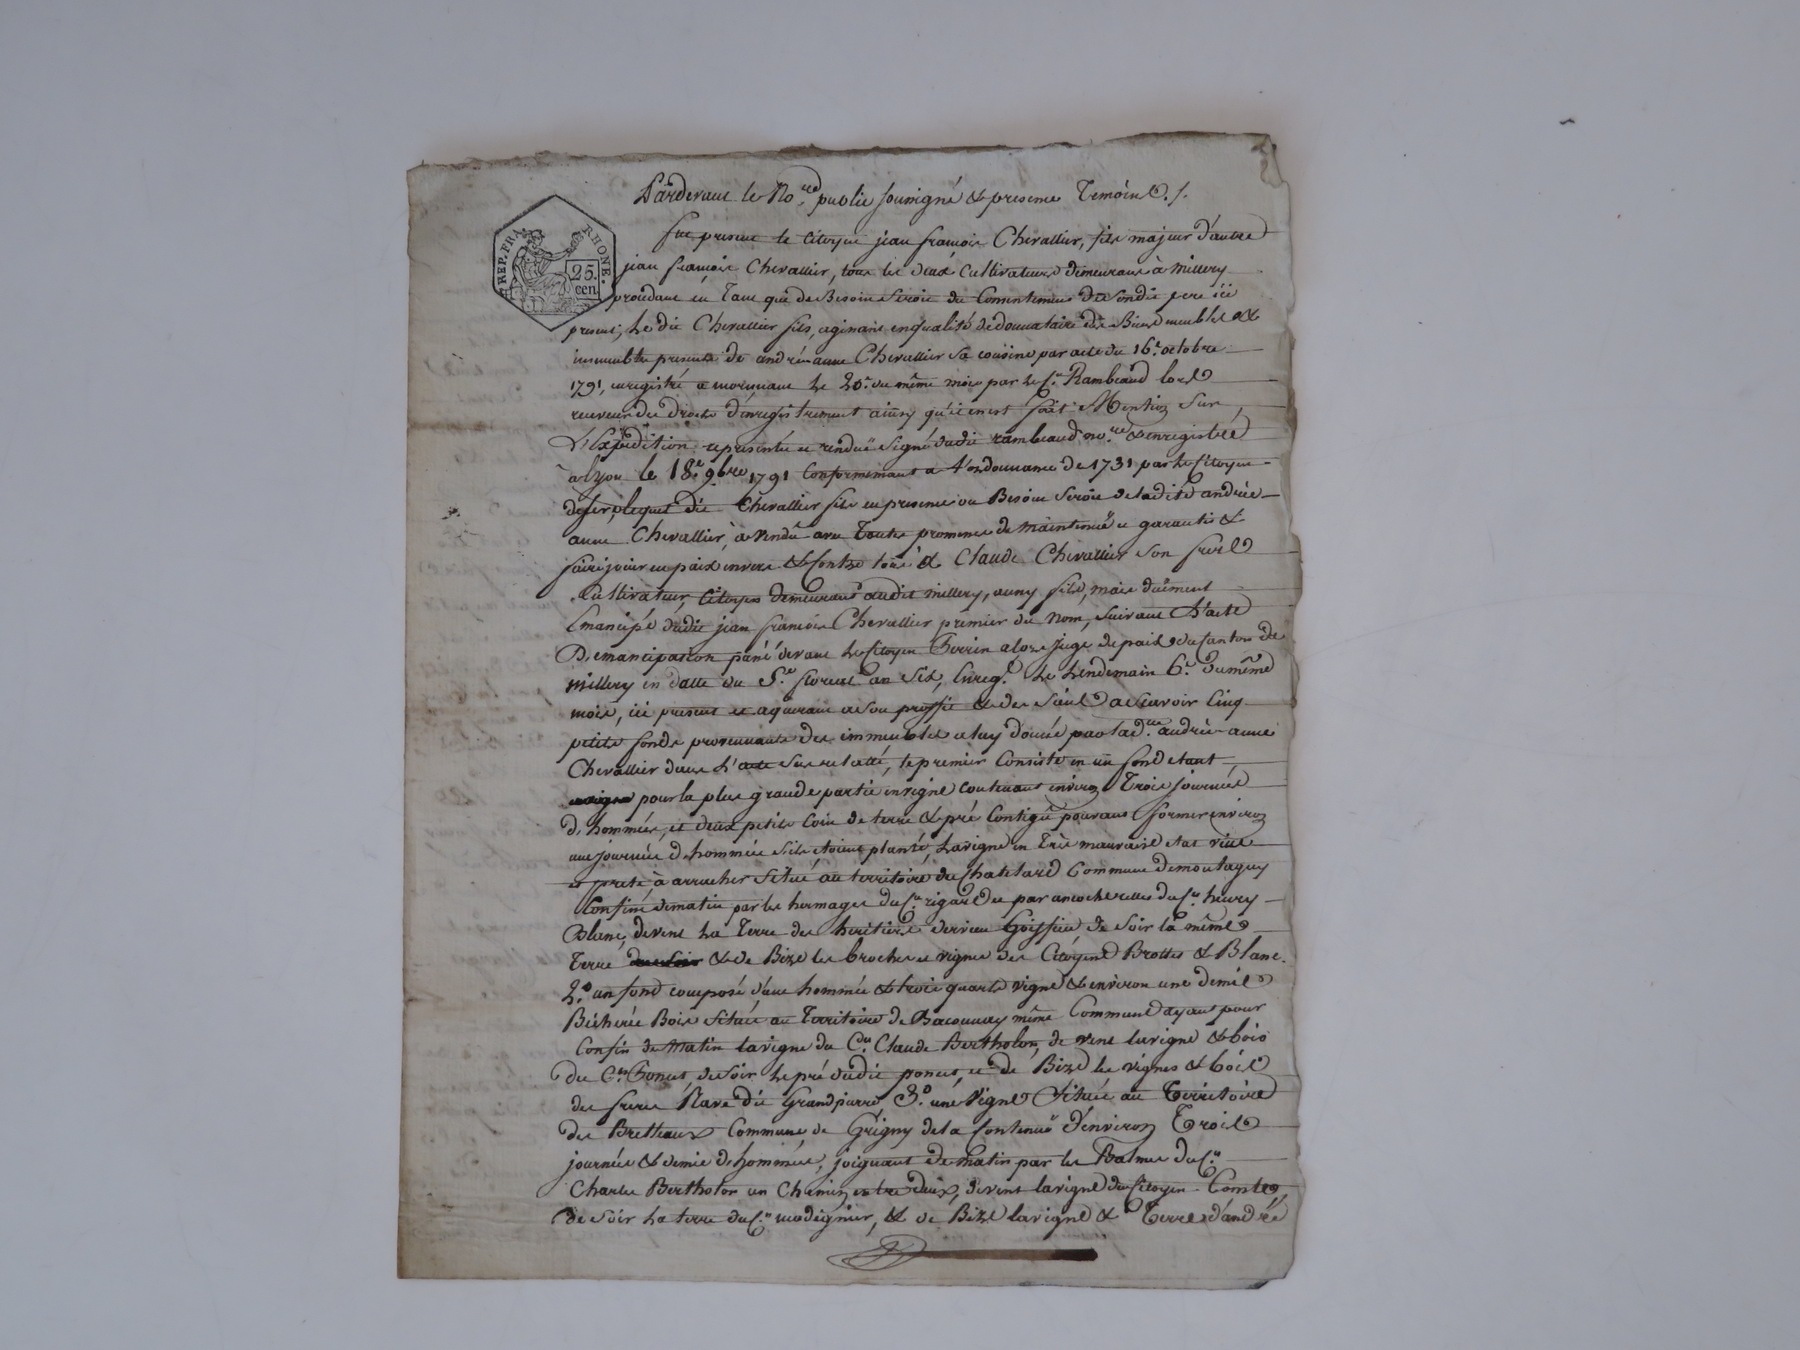 Pardevant le No.re public soussigné & presents Temoins ./.
REP. FRA. RHONE.
25. cen
fut present le Citoyen jean françois Chevallier, fils majeur d'autre
jean françois Chevallier, tous les deux Cultivateurs demeurant à Millery
procedant en Tant que de Besoin seroit du Consentement dudit son pere ici
present, le dit Chevallier fils, agissant en qualité de donnataire des Biens meubles &
immeubles presents de andrée anne Chevallier sa cousine par acte du 16.e octobre
1791, enregistré a mornant le 20.e du même mois par le C.n Rambeaud lors
receveur des droits d'enregistrement ainsy qu'il en est fait Mention sur
L'Expédition representée et rendue signé dudit rambeaud no.re & enregistrée
à Lyon le 18.e 9bre 1791 Conformement a l'ordonnance de 1731 par le Citoyen
lequel dit Chevallier fils en presence ou Besoin seroit de ladite andrée
anne Chevallier, à vendû avec Toutes promesses de maintenüe et garantie &
faire jouir en paix envers & Contre tous à Claude Chevallier son frere
Cultivateur, Citoyen demeurant audit millery, aussy fils, mais düement
Emancipé dudit jean françois Chevallier premier du nom, suivant L'acte
D'emancipation passé devant le Citoyen Terrin alors juge de paix du Canton de
Millery en datte du 5.e floreal an Six, Enreg.é Le Lendemain 6.e du même
mois, ici present et aquerant a son proffit & des siens a scavoir Cinq
petits fonds provenants des immeubles a luy donnés par lad.te andrée anne
Chevallier dans L'acte sus relatté, le premier Consiste en un fond etant
pour la plus grande partie en vigne contenant environ Trois journées
d'hommées, et deux petits Coins de terre & pré Contigus pouvant former environ
une journée d'hommée s'ils etoient planté, La vigne en Très mauvaise etat vieille
et prete à arracher située au territoire du Chatelard Commune de montagny
Confiné de matin par les hermages du C.n rigard et par les du C.n henry
Blanc, de vent La Terre des heritiers dervieu Goiffieu de Soir la même
Terre & de Bize les broches et vignes des Citoyens Brottes & Blanc.
2.o un fond composé d'une hommée & trois quarts vigne & environ une demie
Bicherée Bois située au Territoire de Baconnay même Commune ayant pour
Confin de Matin la vigne du C.n Claude Bertholon, de vent la vigne & bois
du C.n Poncet, de Soir le pré dudit poncet, et de Bize les vignes & bois
des freres Rave dit Grandpierre 3.o une Vigne Située au Territoire
des Bretteaux Commune de Grigny de la Contenüe d'environ Trois
journées & demie d'hommées, joignant de matin par les Balmes du C.n
Charles Bertholon un Chemin entre deux, de vent la vigne du Citoyen Comte,
de Soir La terre du C.n modeignier, & de Bize la vigne & Terre d'andré